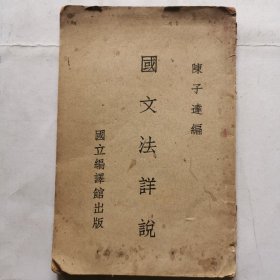 陳子達編
國文法詳說
國立編譯館出版